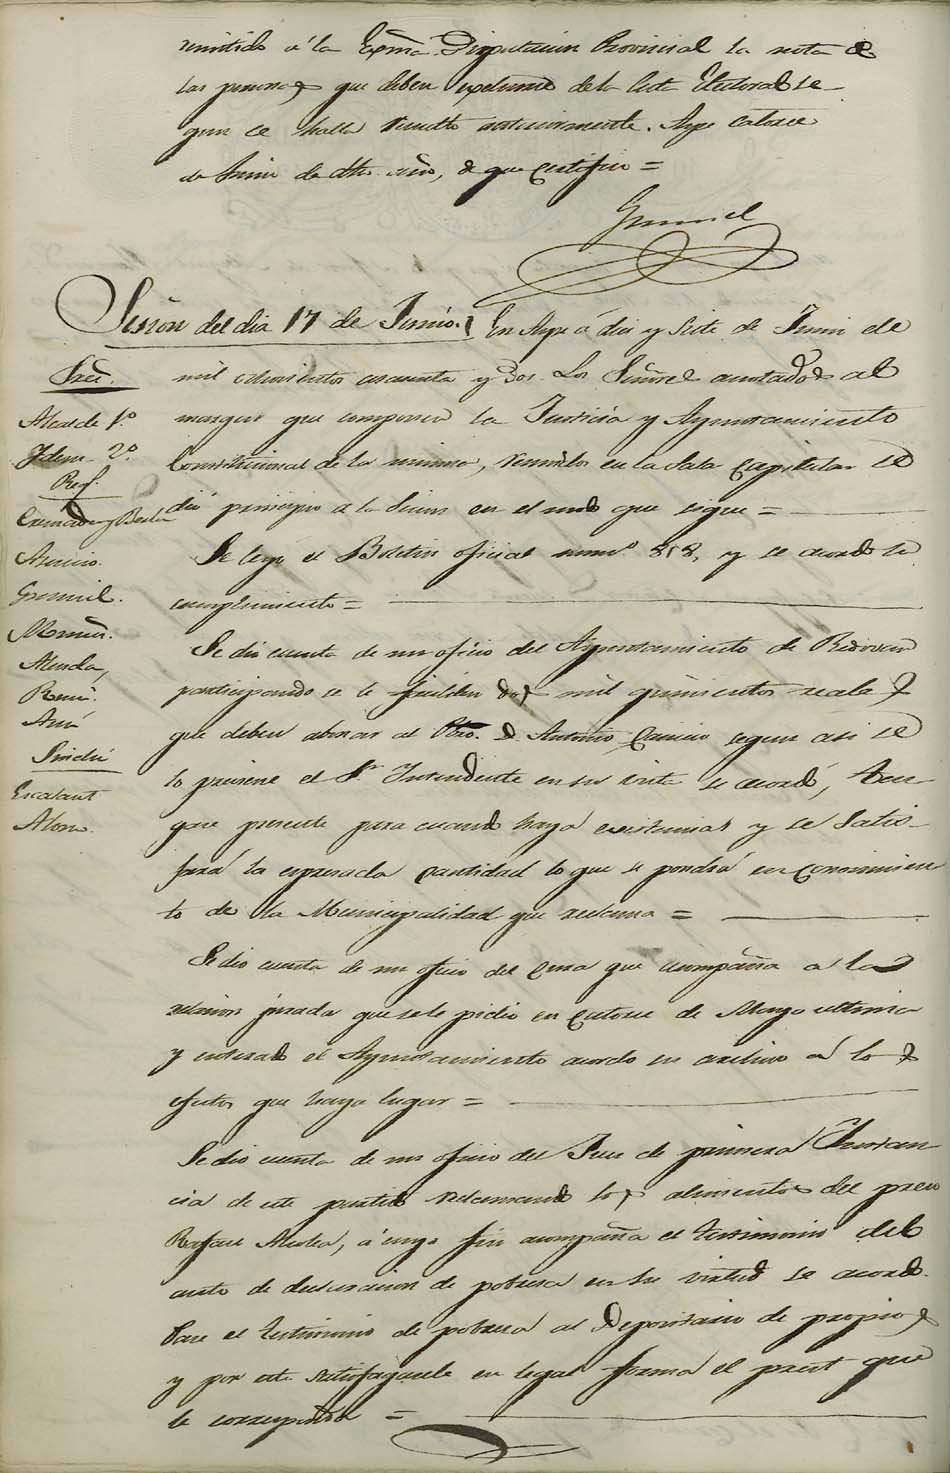 remitido á la Exma. Diputacion Provincial la nota de
las personas que deben escluirse de la lista Electoral se-
gun se halla resuelto anteriormente. Aspe catorce
de Junio de dho. año, de que certifico =
Gremiel
Sesion del dia 17 de Junio. En Aspe á diez y siete de Junio de
mil ochocientos cincuenta y dos. Los Señores anotados al
margen que componen la Justicia y Ayuntamiento
Constitucional de la misma, reunidos en la Sala Capitular se
dió principio a la Sesion en el modo que sigue =
Sres.
Alcalde 1º
Idem 2º
Reg.
Asencio.
Gremiel.
Almodar,
Sindic
Escalant
Alonso.
Se leyó el Boletin oficial num.º 858, y se acordó su
cumplimiento =
Se dió cuenta de un oficio del Ayuntamiento de Redovan
participando se le faciliten dos mil quinientos reales
que deben abonar al Pbro. D. Antonio segun asi se
lo previene el Sr. Intendente en su vista se acordó, ten-
gase presente para cuando haya existencias y se satis-
fará la espresada cantidad lo que se pondrá en conocimien
to de la Municipalidad que reclama =
Se dio cuenta de un oficio del Cura que acompaña a la
relacion jurada que se le pidio en catorce de Mayo ultimo
y enterado el Ayuntamiento acordo su archivo á los
efectos que haya lugar =
Se dio cuenta de un oficio del Juez de primera Instan-
cia de este partido reclamando los alimentos del preso
Rafael á cuyo fin acompaña el testimonio del
auto de declaracion de pobreza en su virtud se acordo.
Pase el testimonio de pobreza al Depositario de propios
y por este satisfagasele en legal forma el prest que
le corresponda =